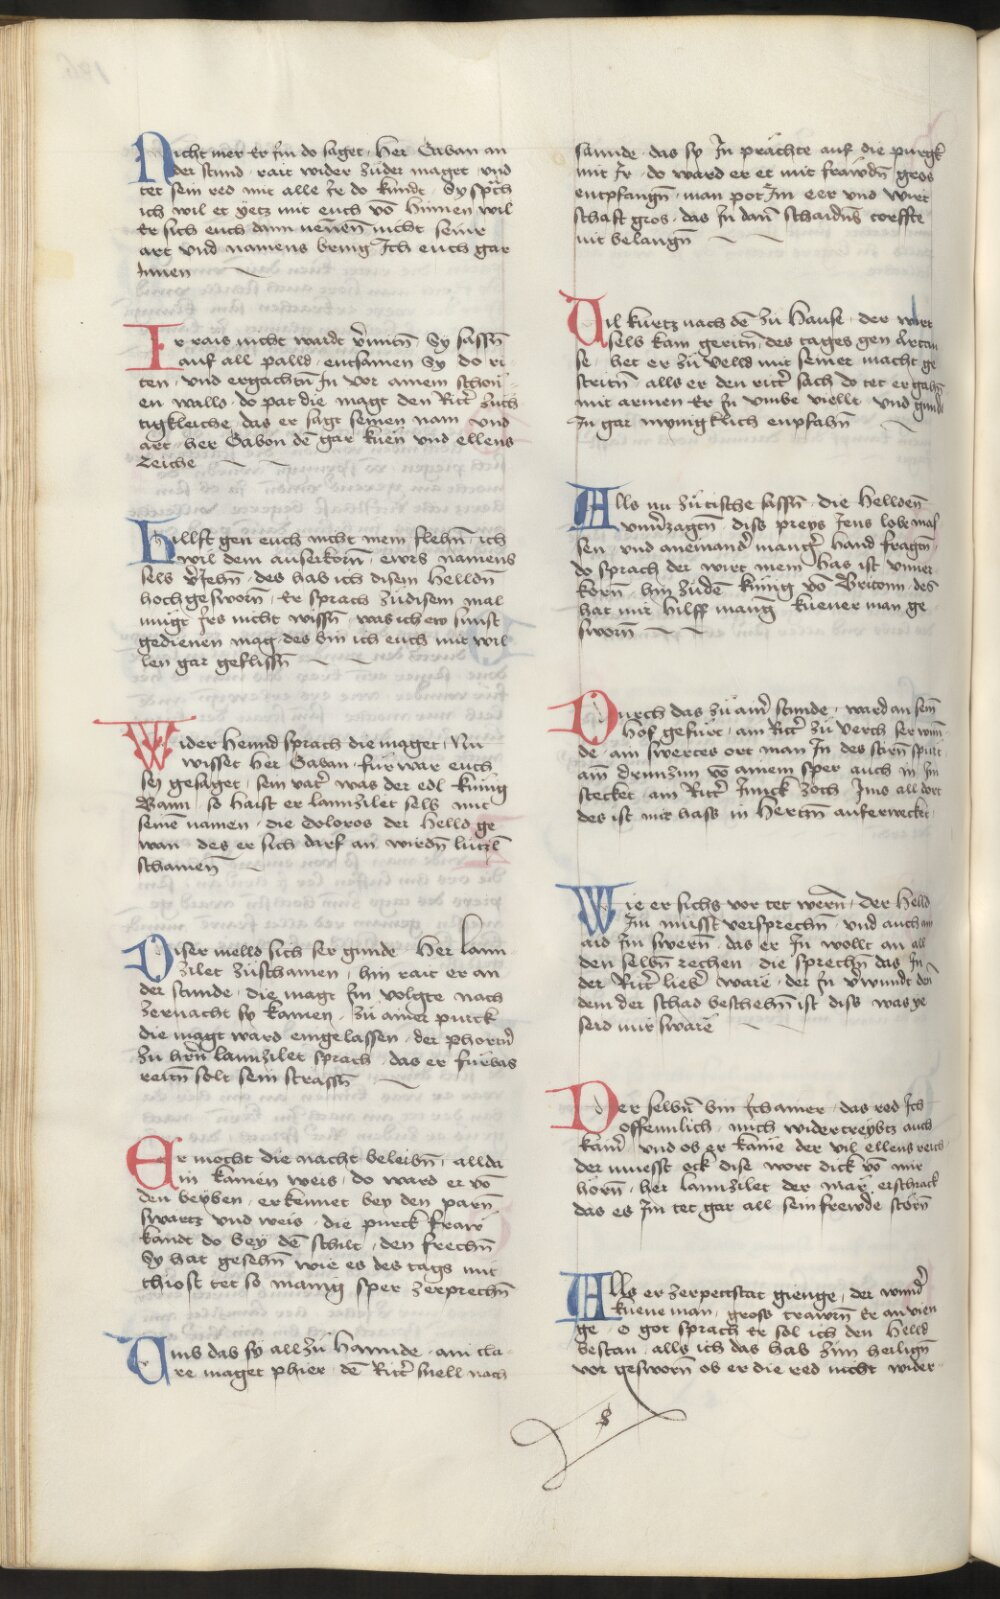 Nicht mer Er Jm do saget · Her Gaban an
der stund · rait wider zuder maget · vnd
tet sein red mit alle Jr do kundt · Sy sp̄ch
ich wil et yetz mit euch vō hinnen wil
Er sich euch dann nēnen nicht seine
art vnd namens bring Ich euch gar
Jnnen
Ir rais nicht wardt v̄mitn̄ · Sy sassn̄
auf all palld · entsamen Sy do ri
ten · vnd ergachtn̄ Jn vor ainem schon
en walld · do pat die magt den Ritt̄ zuch
tigkleiche · das er sagt seinen nam vnd
art · her Gabon dē gar kuen vnd ellens
Reiche
Hillft gen euch nicht mein flehn̄ · ich
wil dem auserkorn̄ · ewrs namens
sels v̄Jehn̄ · des hab ich disem helldn̄
hochgesworn̄ · Er sprach zudisem mal
mugt Jrs nicht wissn̄ · was ich ew sunst
gedienen mag · des bin ich euch mit wil
len gar geflissn̄
Wider hennd sprach die maget · Nu
wisset her Gaban · fur war euch
sey gesaget · sein vat̄ was der edl Kunig
Bann · so haist er lannzilet sels mit
seinē namen · die doloros der helld ge
wan · des er sich darf an wirdn̄ lutzl
schamen̄
Diser melld sich ser gunde · Her lann
zilet zuschamen · hin rait er an
der stunde · die magt Jm volgte nach
zernacht sy kamen · zu ainer purck
die magt ward eingelassen · der phortn̄
zu hrn̄ lannzilet sprach · das er furbas
reitn̄ solt sein strassn̄
Er mocht die nacht beleibn̄ · allda
in kainen weis · do ward er vō
den weyben · erkennet bey den parn̄
swartz vnd weis · die purck fraw
kandt do bey dē schilt · den frechn̄
Sy hat gesehn̄ wie es des tags mit
thiost tet so manig sper zerprechn̄
Vmb das sy allzu hannde · ain cla
re maget phier · dē Ritt̄ snell nach
sannde · das sy Jn prächte auf die purgk
mit Jr · do ward er et mit frawdn̄ gros
entpfangn̄ · man pot Jm eer vnd wirt
schaft gros · das Jn dan̄ schaidn̄s torffte
nit belangn̄
Vil kurtz nach dē zu hause · der wirt
sels kam geritn̄ · des tages gen Artau
se · het er zu velld mit seiner macht ge
stritn̄ · alls er den ritt̄ sach do tet er gahn̄
mit armen Er Jn vmbe viellt · vnd gund
Jn gar mynigklich enpfahn̄
Alls nu zutische sassn̄ · die helldēn
vnūzagtn̄ · diss preys Jens lobe mas
sen · vnd aneinand̄ manḡ hand fragtn̄
do sprach der wirt mein has ist vnuer
korn̄ · hin zudē kunig vō Britonn · des
hat mir hilff manḡ kuener man ge
sworn̄
Durch das zu ain̄ stunde · ward an sein̄
hof gefurt · ain Ritt̄ zu verch ser wun̄
de · ain swertes ort man Jn des stirn̄ spurt
ain̄ drunzun vō ainem sper auch in Jm
stecket · ain Ritt̄ Junck zoch Jms all dort
des ist mir hass in hertzn̄ auferweckt
Wie er sichs vor tet wern̄ · der helld
Jm musst versprechn̄ · vnd auch ain
aid Jm swern̄ · das er Jn wollt an all
den selbn̄ rechen · die sprechn̄ das Jn
der Ritt̄ lieb̄ ware · der Jn v̄wundt den̄
dem der schad beschehn̄ ist diss was ye
seid mir sware
Der selbn̄ bin Ich ainer · das red Ich
offennlich · mich widertreybtz auch
kain̄ · vnd ob er kame der vil ellens reich
der muesst ock dise wort dick vō mir
horn̄ · her lannzilet der mar erschrack
das es Jm tet gar all sein frewde storn̄
Alls er zerpettstat gienge · der wund̄
kuene man · gross trawrn̄ Er an vien
ge · o got sprach Er sol ich den helld
bestan · alls ich das hab zun heilign̄
vor gesworn̄ ob er die red nicht wider